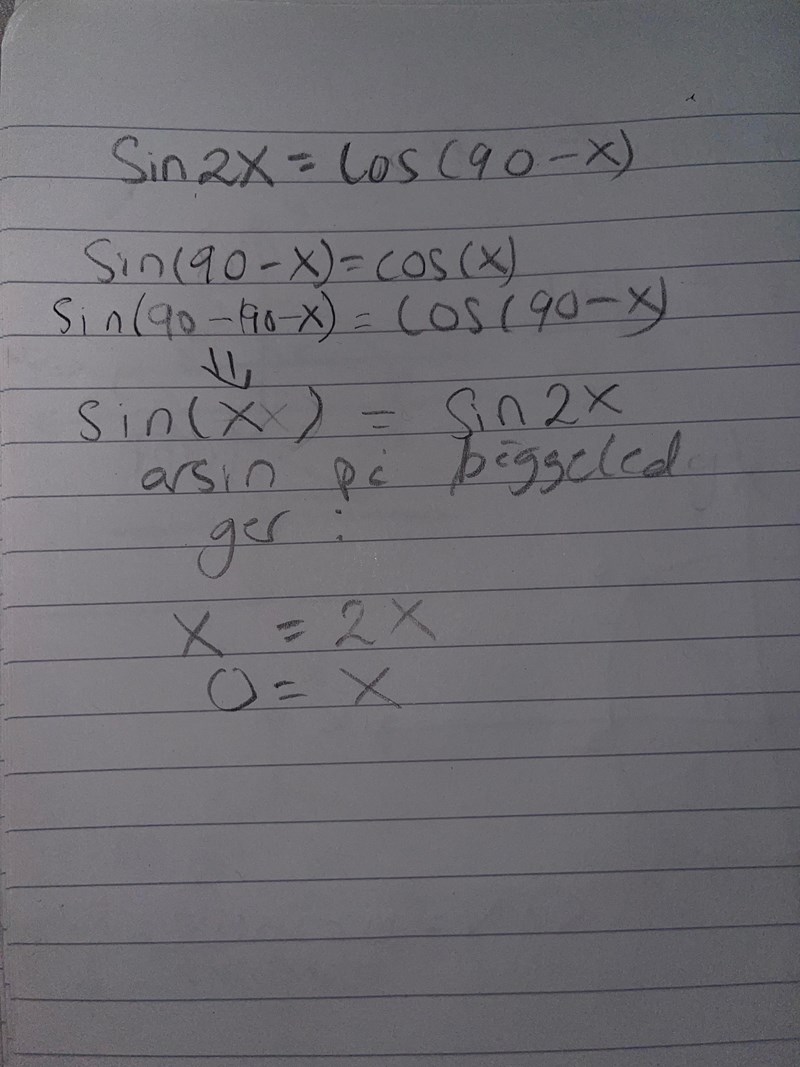 Sin2x = Cos(90-x)
Sin(90-x)=cos(x)
Sin(90-(90-x)= Cos(90-x)
⇓
Sin(x) = Sin2x
arsin på biggeled
ger :
x = 2x
0 = x